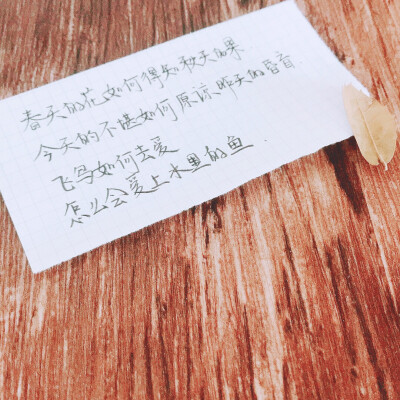 春天的花如何得知秋天的果
今天的不堪如何原谅昨天的昏
飞鸟如何去爱
怎么会爱上水里的鱼.